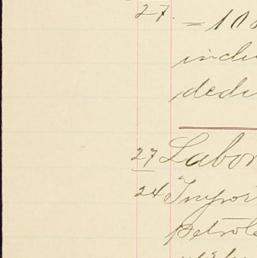 27.
= 10
inclu
dedi
27 Labor
24 Impor
Petrole